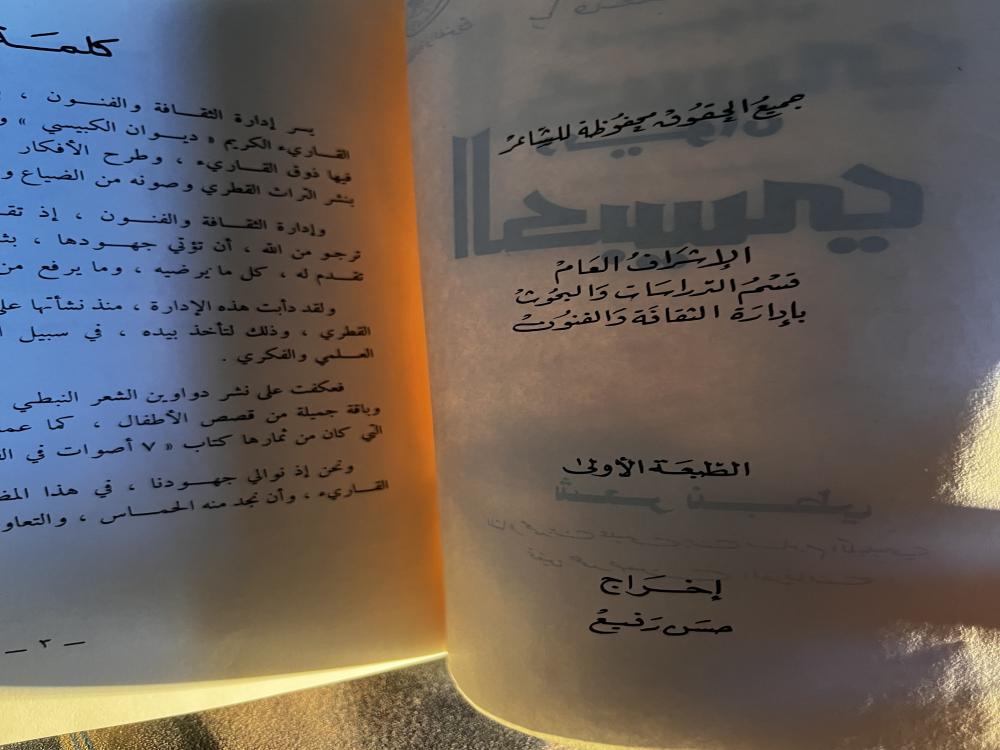 جميع الحقوق محفوظة للشاعر
الإشراف العام
قسم الدراسات والبحوث
بإدارة الثقافة والفنون
الطبعة الأولى
إخراج
حسن رفيع
كلمة
يسر إدارة الثقافة والفنون ،
القاريء الكريم « ديوان الكبيسي » و
فيها ذوق القاريء ، وطرح الأفكار
بنشر التراث القطري وصونه من الضياع و
وإدارة الثقافة والفنون ، إذ تقـ
ترجو من الله ، أن تؤتي جهودها ،
تقدم له ، كل ما يرضيه ، وما يرفع من
ولقد دأبت هذه الإدارة ، منذ نشأتها على
القطري ، وذلك لتأخذ بيده ، في سبيل
العلمي والفكري .
فعكفت على نشر دواوين الشعر النبطي
وباقة جميلة من قصص الأطفال ، كما عمـ
التي كان من ثمارها كتاب « ٧ أصوات في
ونحن إذ نوالي جهودنا ، في هذا المضـ
القاريء ، وأن نجد منه الحماس ، والتعاو
— ٣ —